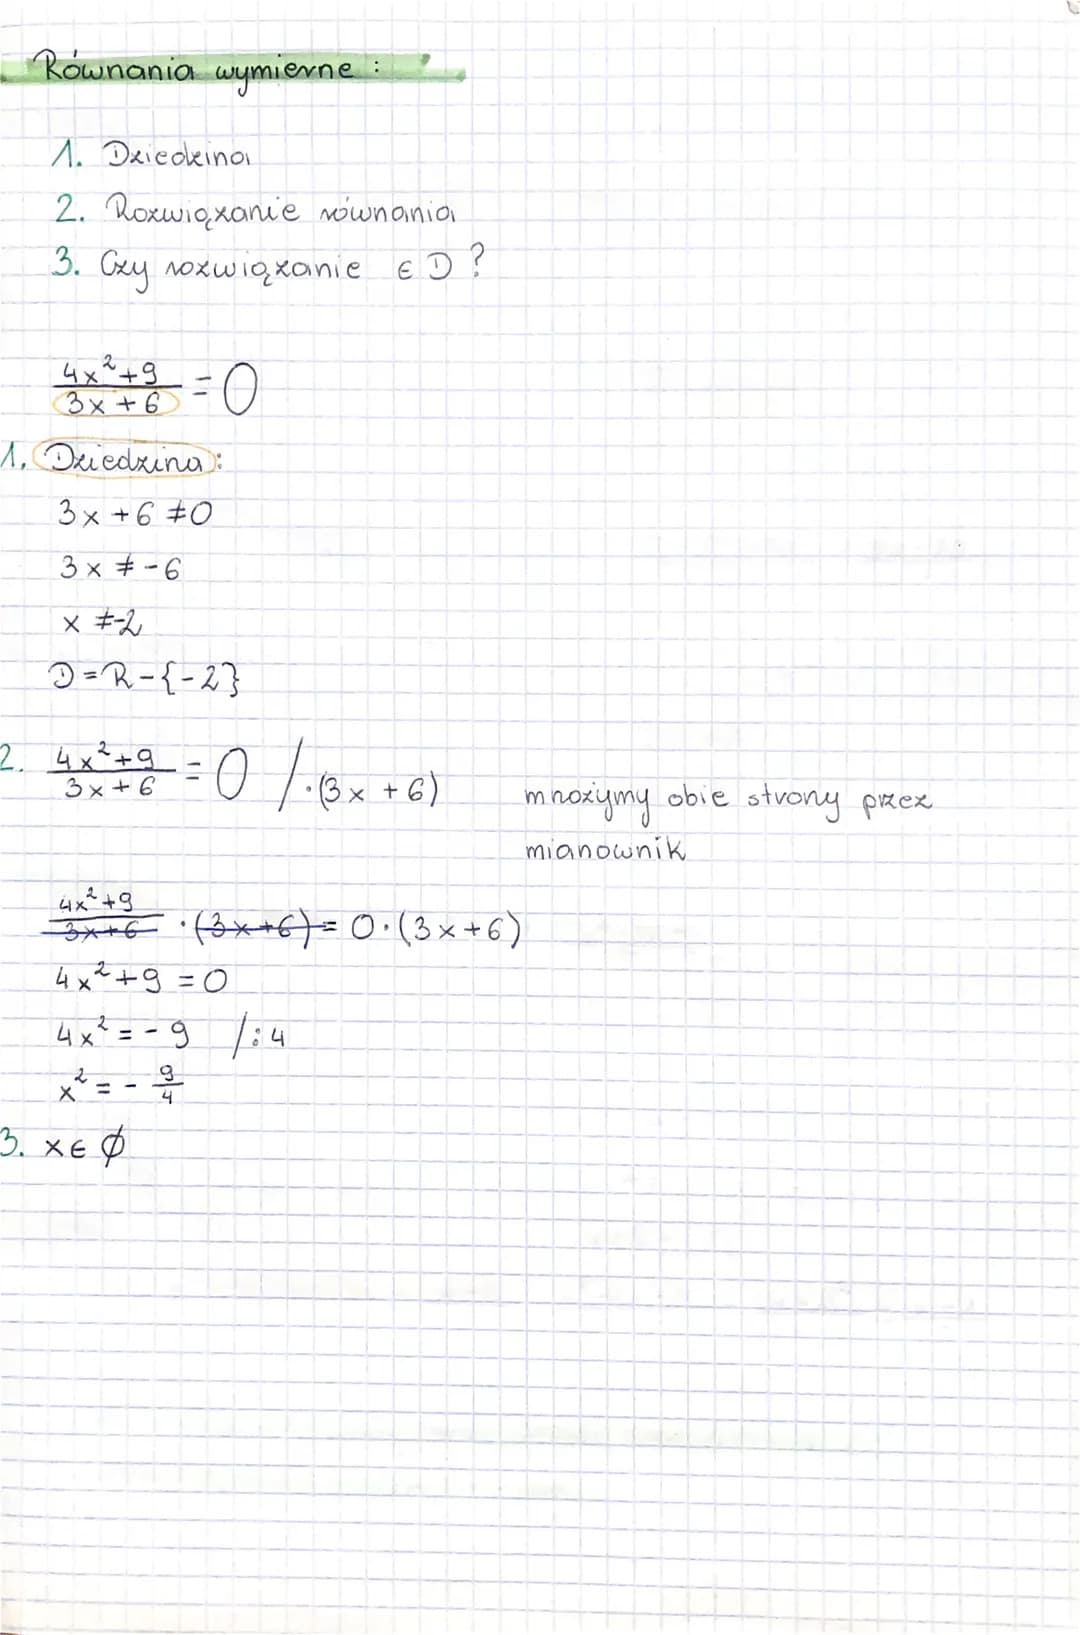 Równania wymierne :
1. Dziedzina
2. Rozwiązanie równania
3. Czy rozwiązanie ∈ D ?
4x²+9
3x+6 = 0
1. Dziedzina:
3x+6 ≠0
3x ≠ -6
x ≠-2
D=R-{-2}
2. 4x²+9
3x+6 = 0 /·(3x+6) mnożymy obie strony przez
mianownik
4x²+9
3x+6 ·(3x+6)= 0·(3x+6)
4x²+9 =0
4x² = -9 /:4
x² = - 9/4
3. x∈ ∅